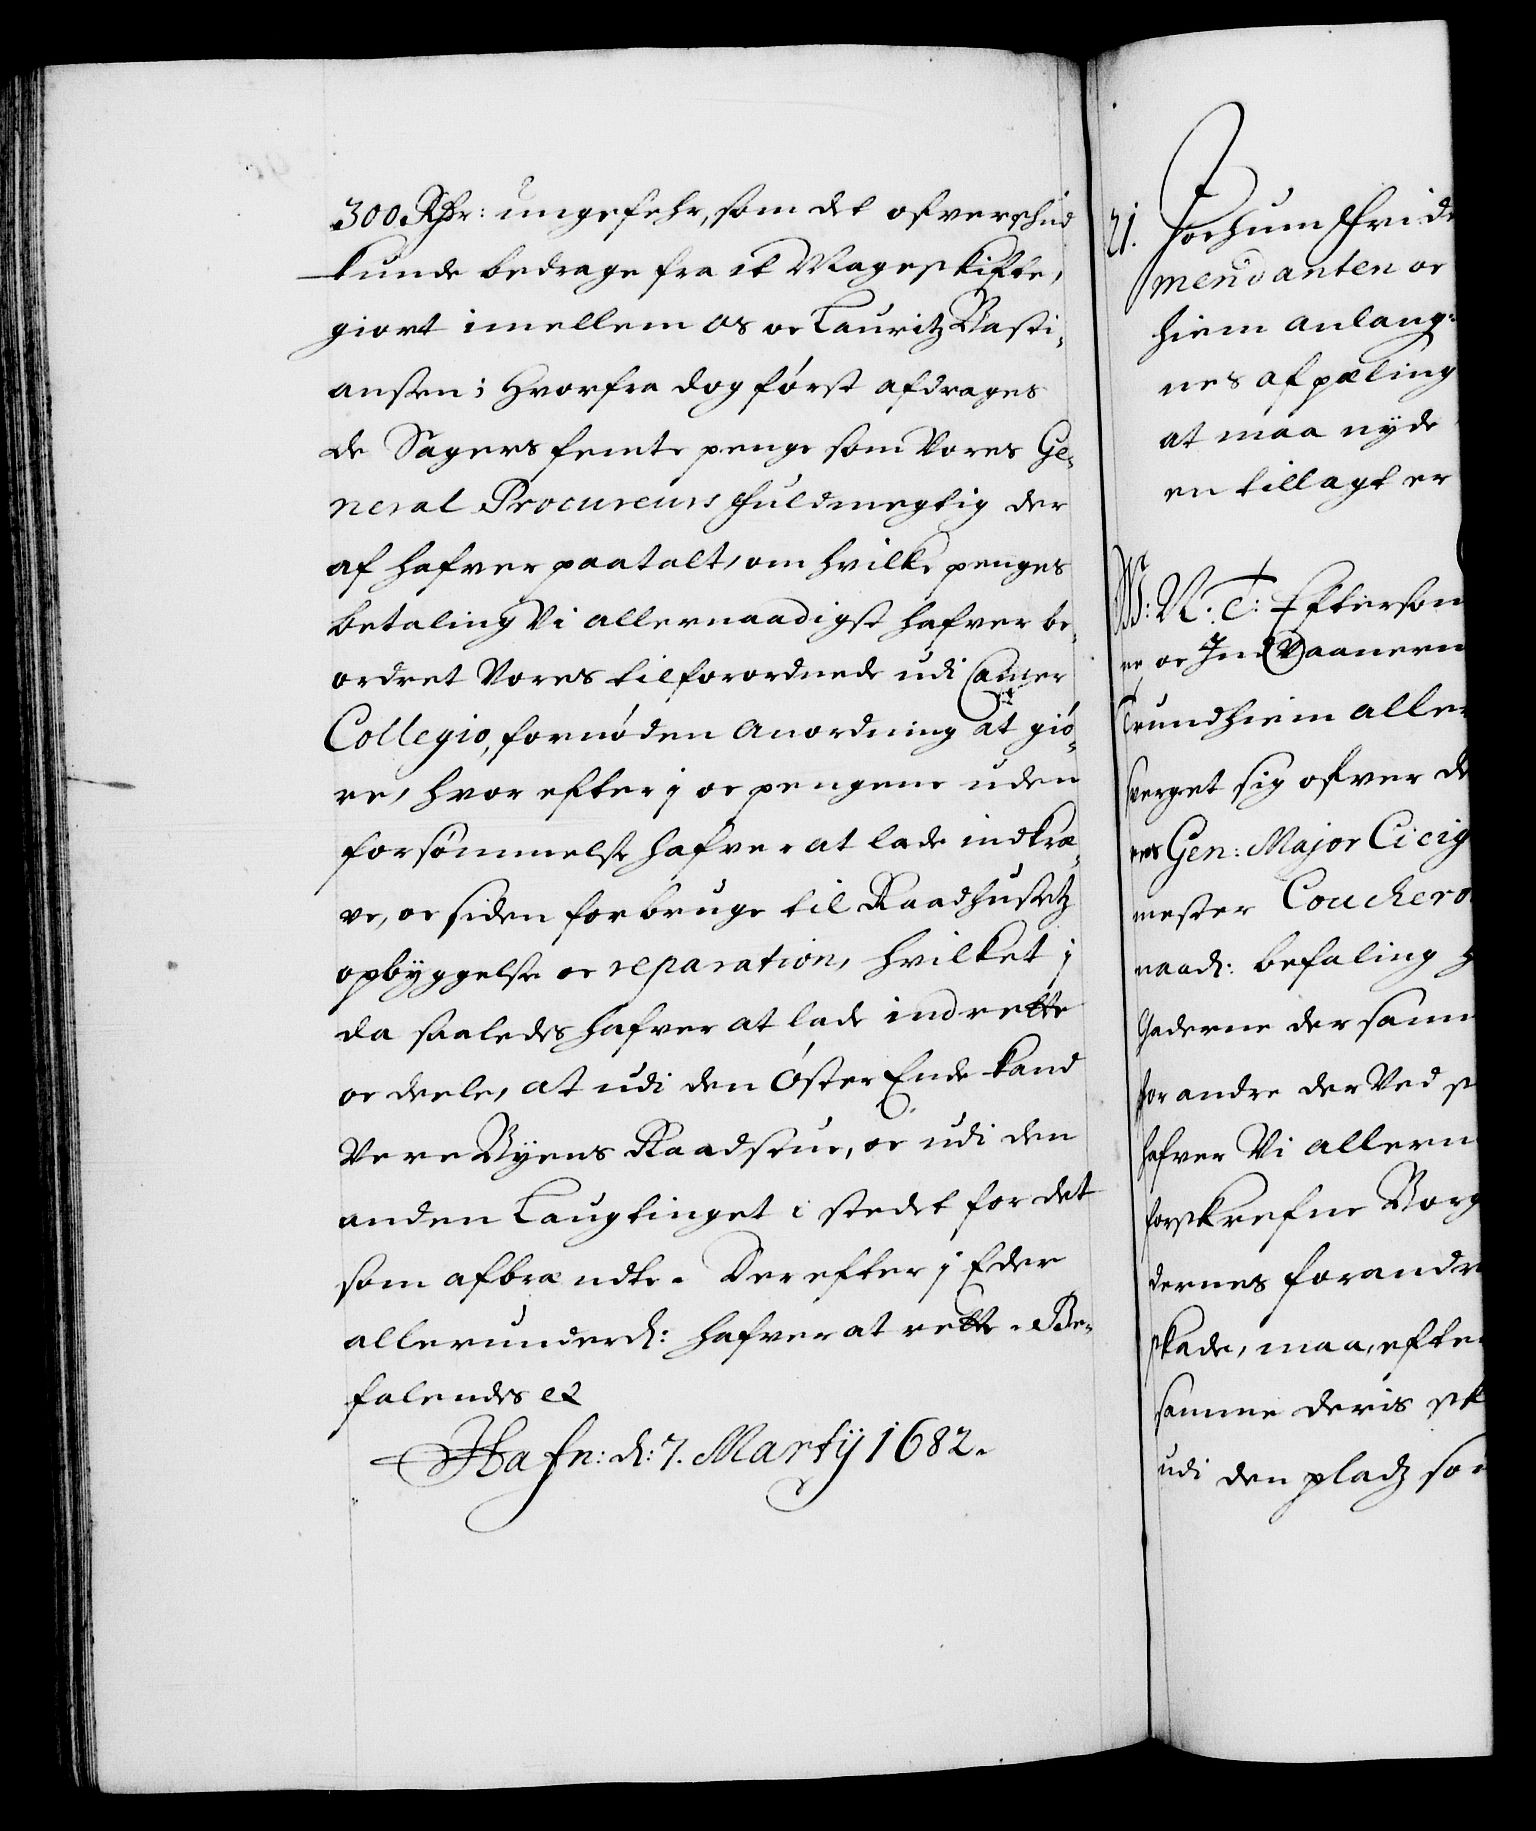 300 Rdr: ungefehr, som det ofverschud
kunde bedrage fra et Mageskifte,
giort imellem os oc Lauritz Basti-
ansen; Hvorfra dog først afdrages
de Sagers femte penge som Vores Ge-
neral Procureurs fuldmegtig der
af hafver paatalt, om hvilke penges
betaling Vi allernaadigst hafver be-
ordret Vores tilforordnede udi Camer
Collegio, fornøden Anordning at giø-
re, hvor efter j oc pengene uden
forsømmelse hafver at lade indkræ-
ve, oc siden forbruge til Raadhusetz
opbyggelse oc reparation, hvilket j
da saaledes hafver at lade indrette
oc deele, at udi den Øster Ende kand
Vere Byens Raadstue, oc udi den
anden Laugtinget i stedet for det
som afbrændte. Der efter j Eder
allerunderd: hafver at rette. Be-
falendes etc
Hafn: d: 7. Martij 1682.
21. Jochum Frid
mendanten oc
hiem anlang-
nes afpæling
at maa nyde
en tillagt er
W: N: T: Eftersom
re oc Indvaanern
Trundhiem aller
sverget sig ofver de
res Gen: Major Cicig
mester Coucheron
naad: befaling h
Gaderne der samm
forandre der Ved
hafver Vi allern
forskrefne Borg
dernes forandr
skade, maa, efter
samme deris
udi den pladz som